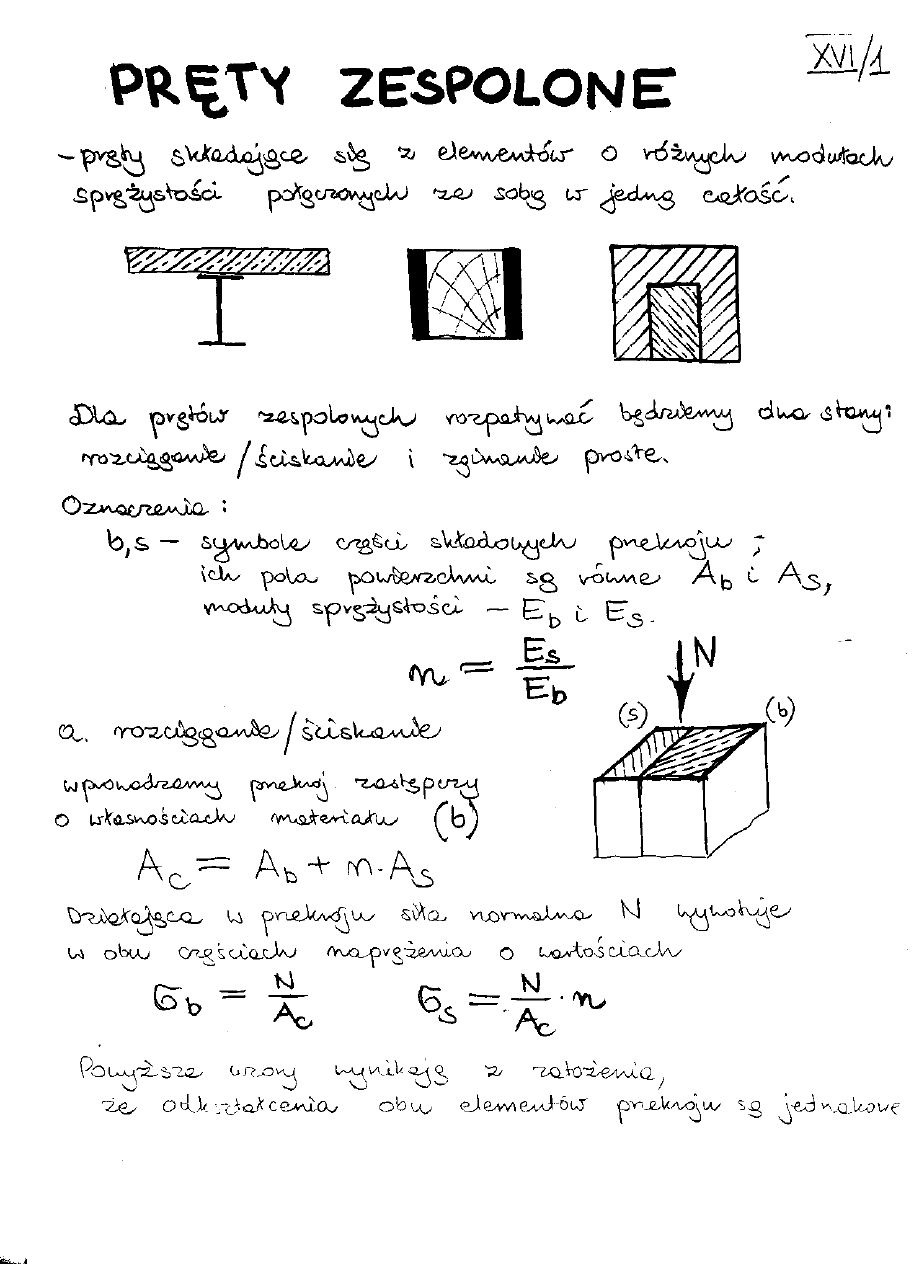 XVI/1
PRĘTY ZESPOLONE
- pręty składające się z elementów o różnych modułach
sprężystości połączonych ze sobą w jedną całość.
Dla prętów zespolonych rozpatrywać będziemy dwa stany:
rozciąganie/ściskanie i zginanie proste.
Oznaczenia:
b,s - symbole części składowych przekroju;
ich pola powierzchni są równe Ab i As,
moduły sprężystości - Eb i Es.
n = Es/Eb
N
(s) (b)
a. rozciąganie/ściskanie
wprowadzamy przekrój zastępczy
o własnościach materiału (b)
Ac = Ab + n·As
Działająca w przekroju siła normalna N wywołuje
w obu częściach naprężenia o wartościach
σb = N/Ac σs = N/Ac · n
Powyższe wzory wynikają z założenia,
że odkształcenia obu elementów przekroju są jednakowe